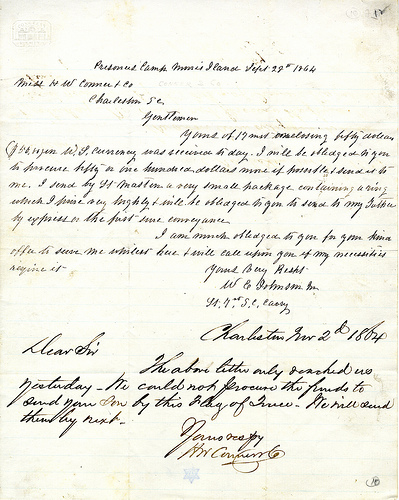 Prisoners Camp Morris Iland Sept 29th 1864
Mess H W Conner & Co
Charleston S.C.
Gentlemen
Yours of 17 inst enclosing fifty dollars
in U.S. Currency was received to day. I will be obledged to you
to procure fifty or one hundred dollars more if possible & send it to
me. I send by Lt Masten a very small package containing a ring
which I prize very highly & will be obledged to you to send to my Father
by express or the first sure conveyance.
I am much obledged to you for your kind
offer to serve me whilst here & will call upon you if my necessities
require it
Yours Very Respt
W E Johnson Jr
Lt. 7th S.C. Cavry
Charleston Nov 2d 1864
Dear Sir
The above letter only reached us
yesterday - We could not procure the funds to
send your Son by this Flag of Truce - We will send
them by next -
Yours respy
HW Conner & Co